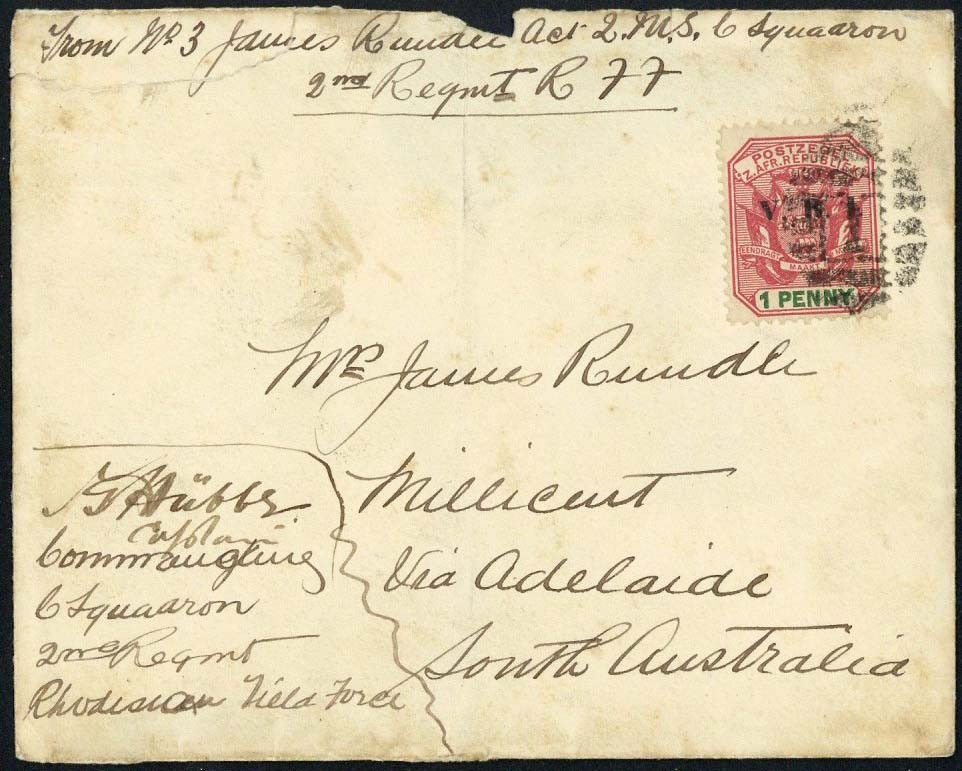 From No 3 James Rundle Act Q.M.S. C Squadron
2nd Regmt R F F
POSTZEGEL
Z. AFR. REPUBLIEK
V. R. I.
EENDRAGT MAAKT
1 PENNY
Mrs James Rundle
Millicent
Via Adelaide
South Australia
Hübbe
Captain
Commanding
C Squadron
2nd Regmt
Rhodesian Field Force